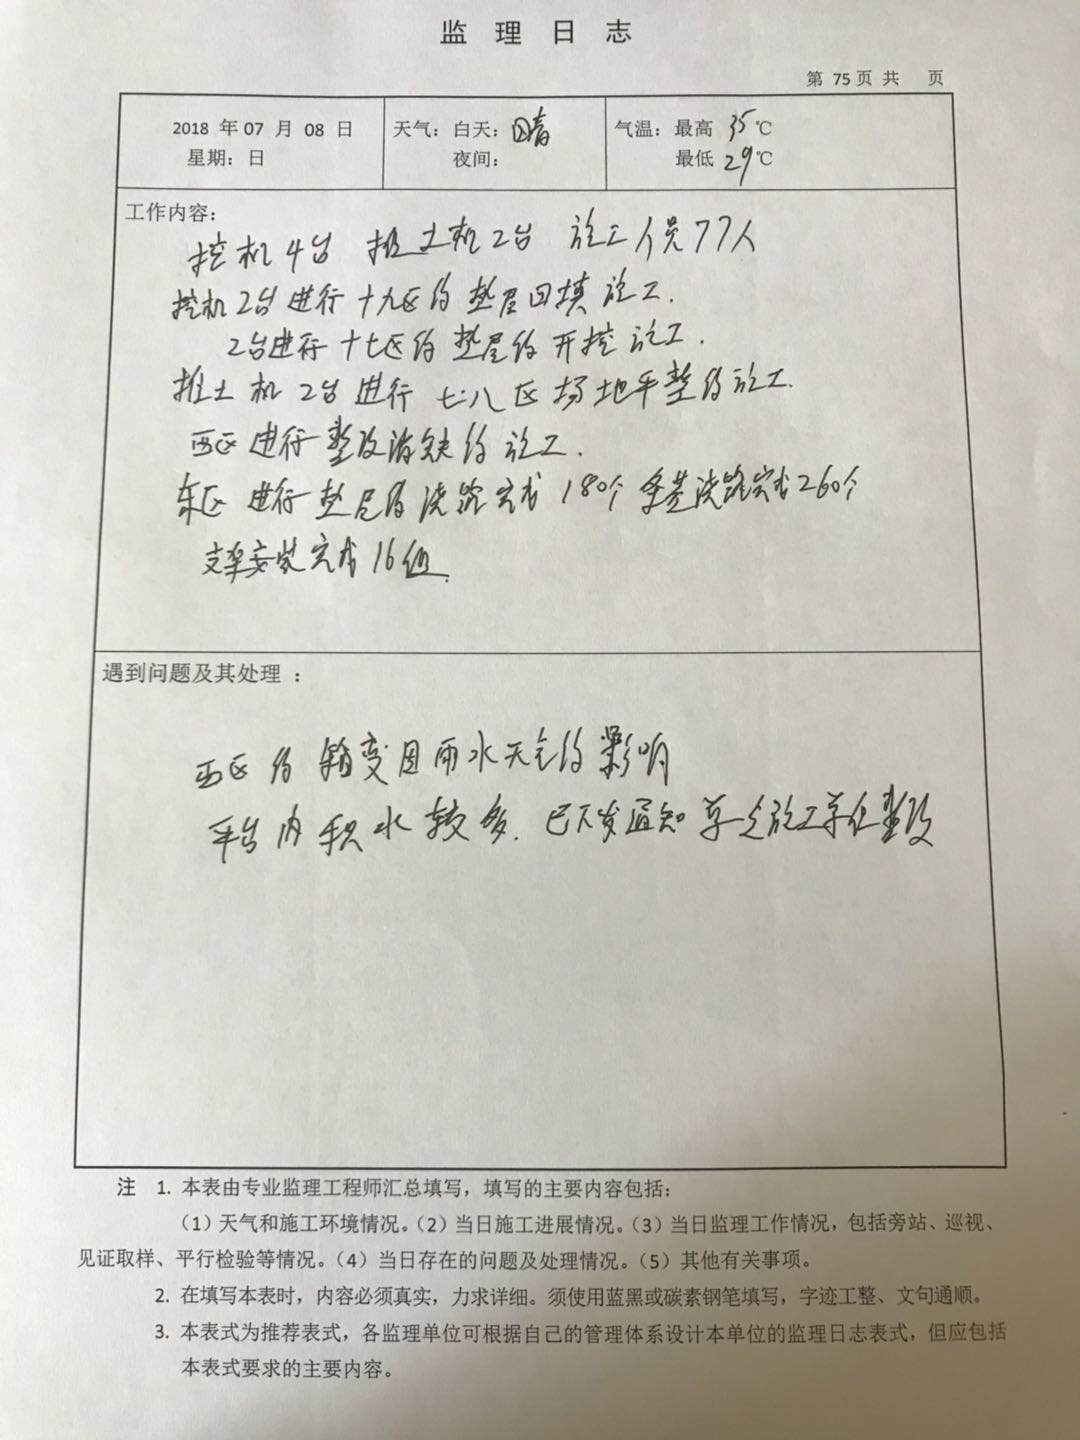 监理日志
第 75页 共 页
2018 年07 月 08 日
星期：日
天气：白天：晴
夜间：
气温：最高 35℃
最低 29℃
工作内容：
挖机4台 推土机2台 施工人员77人
挖机2台进行十九区的垫层回填施工.
2台进行十七区的垫层的开挖施工.
推土机2台进行七.八区场地平整的施工.
西区进行整改消缺的施工.
东区进行垫层的浇筑完成180个 条基浇筑完成260个
支架安装完成16组.
遇到问题及其处理：
西区的箱变因雨水天气的影响
平台内积水较多. 已下发通知单 施工单位整改
注 1. 本表由专业监理工程师汇总填写，填写的主要内容包括：
（1）天气和施工环境情况。（2）当日施工进展情况。（3）当日监理工作情况，包括旁站、巡视、
见证取样、平行检验等情况。（4）当日存在的问题及处理情况。（5）其他有关事项。
2. 在填写本表时，内容必须真实，力求详细。须使用蓝黑或碳素钢笔填写，字迹工整、文句通顺。
3. 本表式为推荐表式，各监理单位可根据自己的管理体系设计本单位的监理日志表式，但应包括
本表式要求的主要内容。